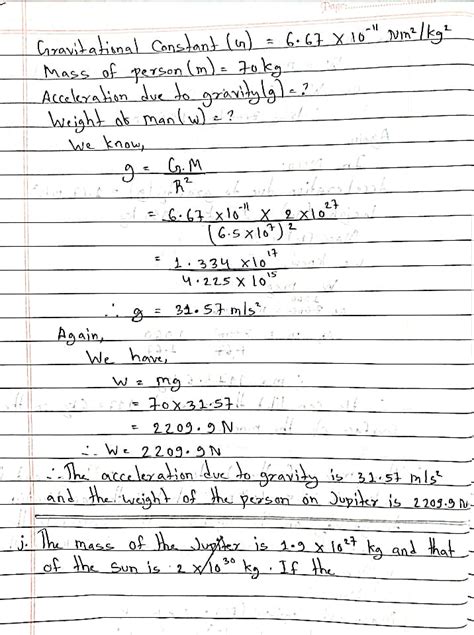 Gravitational Constant (G) = 6.67 × 10⁻¹¹ Nm²/kg²
Mass of person (m) = 70kg
Acceleration due to gravity(g) = ?
Weight of man (w) = ?
We know,
g = G.M / R²
= 6.67 × 10⁻¹¹ × 2 × 10²⁷ / (6.5 × 10⁷)²
= 1.334 × 10¹⁷ / 4.225 × 10¹⁵
∴ g = 31.57 m/s²
Again,
We have,
W = mg
= 70 × 31.57
= 2209.9 N
∴ W = 2209.9 N
∴ The acceleration due to gravity is 31.57 m/s²
and the weight of the person on Jupiter is 2209.9 N.
j. The mass of the Jupiter is 1.9 × 10²⁷ kg and that
of the sun is 2 × 10³⁰ kg. If the